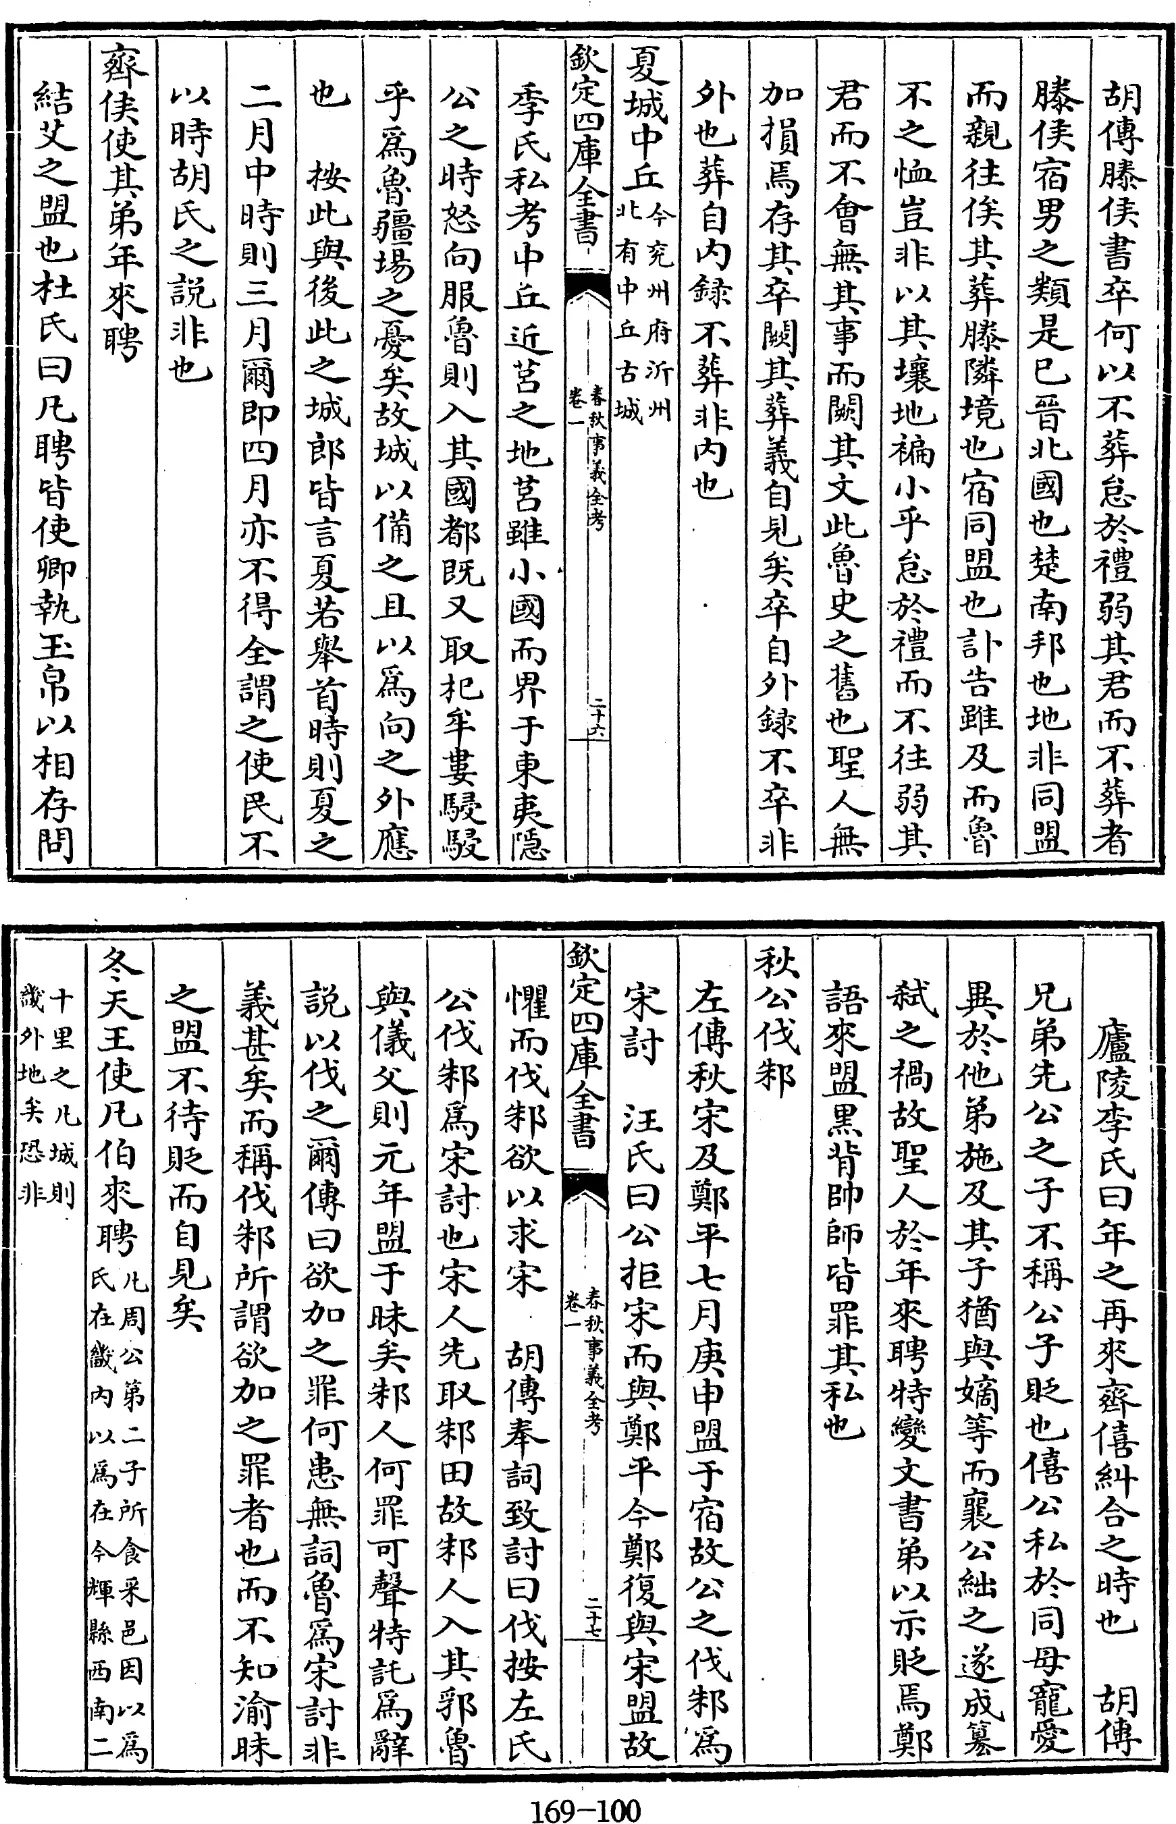 胡傳滕侯書卒何以不葬怠於禮弱其君而不葬者
滕侯宿男之類是已晉北國也楚南邦也地非同盟
而親往俟其葬滕隣境也宿同盟也訃告雖及而魯
不之恤豈非以其壤地褊小乎怠於禮而不往弱其
君而不會無其事而闕其文此魯史之舊也聖人無
加損焉存其卒闕其葬義自見矣卒自外録不卒非
外也葬自内録不葬非内也
夏城中丘今兖州府沂州北有中丘古城
欽定四庫全書
春秋事義全考
卷一
二十六
季氏私考中丘近莒之地莒雖小國而界于東夷隱
公之時怒向服魯則入其國都既又取杞牟婁駸駸
乎爲魯疆場之憂矣故城以備之且以爲向之外應
也 按此與後此之城郎皆言夏若舉首時則夏之
二月中時則三月爾即四月亦不得全謂之使民不
以時胡氏之說非也
齊侯使其弟年來聘
結艾之盟也杜氏曰凡聘皆使卿執玉帛以相存問
廬陵李氏曰年之再來齊僖糾合之時也 胡傳
兄弟先公之子不稱公子貶也僖公私於同母寵愛
異於他弟施及其子猶與嫡等而襄公絀之遂成篡
弑之禍故聖人於年來聘特變文書弟以示貶焉鄭
語來盟黑背帥師皆罪其私也
秋公伐邾
左傳秋宋及鄭平七月庚申盟于宿故公之伐邾爲
宋討 汪氏曰公拒宋而與鄭平今鄭復與宋盟故
欽定四庫全書
春秋事義全考
卷一
二十七
懼而伐邾欲以求宋 胡傳奉詞致討曰伐按左氏
公伐邾爲宋討也宋人先取邾田故邾人入其郛魯
與儀父則元年盟于昧矣邾人何罪可聲特託爲辭
說以伐之爾傳曰欲加之罪何患無詞魯爲宋討非
義甚矣而稱伐邾所謂欲加之罪者也而不知渝昧
之盟不待貶而自見矣
冬天王使凡伯來聘凡周公第二子所食采邑因以爲氏在畿内以爲在今輝縣西南二
十里之凡城則畿外地矣恐非
169-100